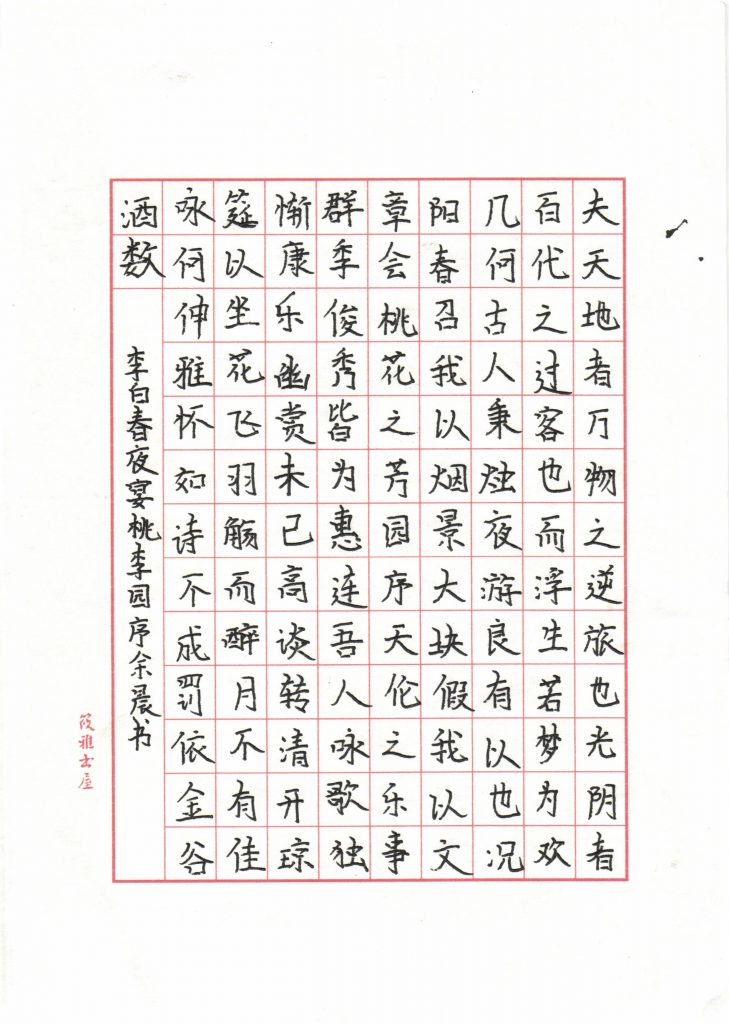 夫天地者万物之逆旅也光阴者
百代之过客也而浮生若梦为欢
几何古人秉烛夜游良有以也况
阳春召我以烟景大块假我以文
章会桃花之芳园序天伦之乐事
群季俊秀皆为惠连吾人咏歌独
惭康乐幽赏未已高谈转清开琼
筵以坐花飞羽觞而醉月不有佳
咏何伸雅怀如诗不成罚依金谷
酒数
李白春夜宴桃李园序余晨书
筱雅书屋